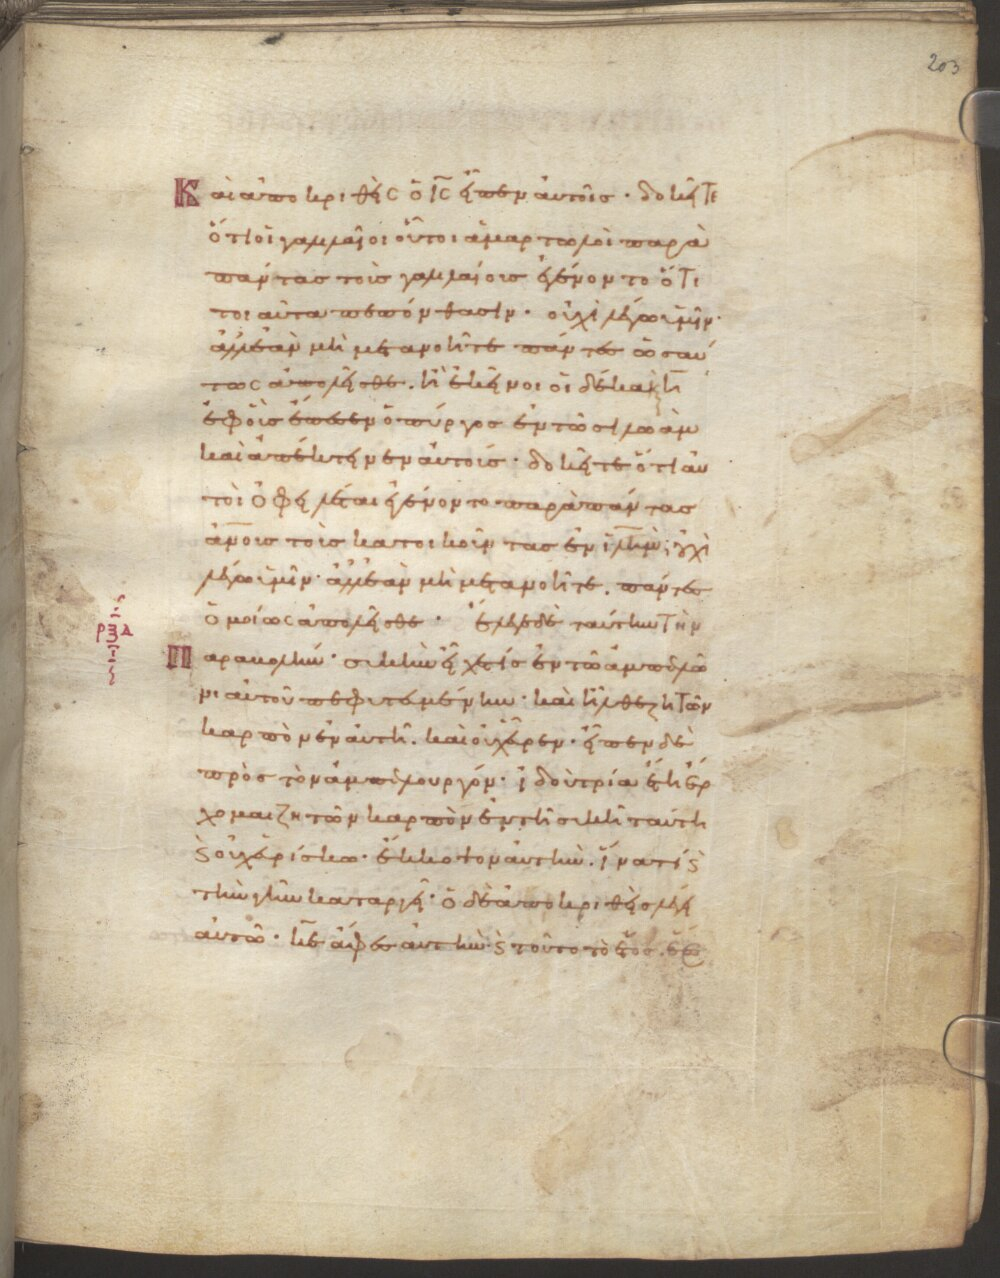 203
Καὶ ἀποκριθεὶς ὁ ις̅ εἶπεν αὐτοῖς· δοκεῖτε
ὅτι οἱ γαλιλαῖοι οὗτοι ἁμαρτωλοὶ παρὰ
πάντας τοὺς γαλιλαίους ἐγένοντο ὅτι
τοιαῦτα πεπόνθασιν· οὐχὶ λέγω ὑμῖν·
ἀλλ' ἐὰν μὴ μετανοῆτε πάντες ὡσαύ
τως ἀπολεῖσθε. ἢ ἐκεῖνοι οἱ δέκα κ ιη̅
ἐφ' οὓς ἔπεσεν ὁ πύργος ἐν τῶ σιλωὰμ
καὶ ἀπέκτεινεν αὐτούς· δοκεῖτε ὅτι αὐ
τοὶ ὀφειλέται ἐγένοντο παρὰ πάντας
ἀν̅ους τοὺς κατοικοῦντας ἐν ἱλ̅ημ; οὐχὶ
λέγω ὑμῖν· ἀλλ' ἐὰν μὴ μετανοῆτε. πάντες
ὁμοίως ἀπολεῖσθε· ἔλεγε δὲ ταύτην τὴν
ρξδ
Παραβολήν· συκὴν εἶχέ τις ἐν τῶ ἀμπελῶ
νι αὐτοῦ πεφυτευμένην· καὶ ἦλθε ζητῶν
καρπὸν ἐν αὐτῆ. καὶ οὐχ' εὗρεν· εἶπεν δὲ
πρὸς τὸν ἀμπελουργόν· ἰδοὺ τρία ἔτη ἔρ
χομαι ζητῶν καρπὸν ἐν τῆ συκῆ ταύτη
ϗ οὐχ' εὑρίσκω· ἔκκοψον αὐτήν. ἵνα τί ϗ
τὴν γῆν καταργεῖ· ὁ δὲ ἀποκριθεὶς λέγει
αὐτῶ· κ̅ε ἄφες αὐτὴν ϗ τοῦτο τὸ ἔτος. ἕως